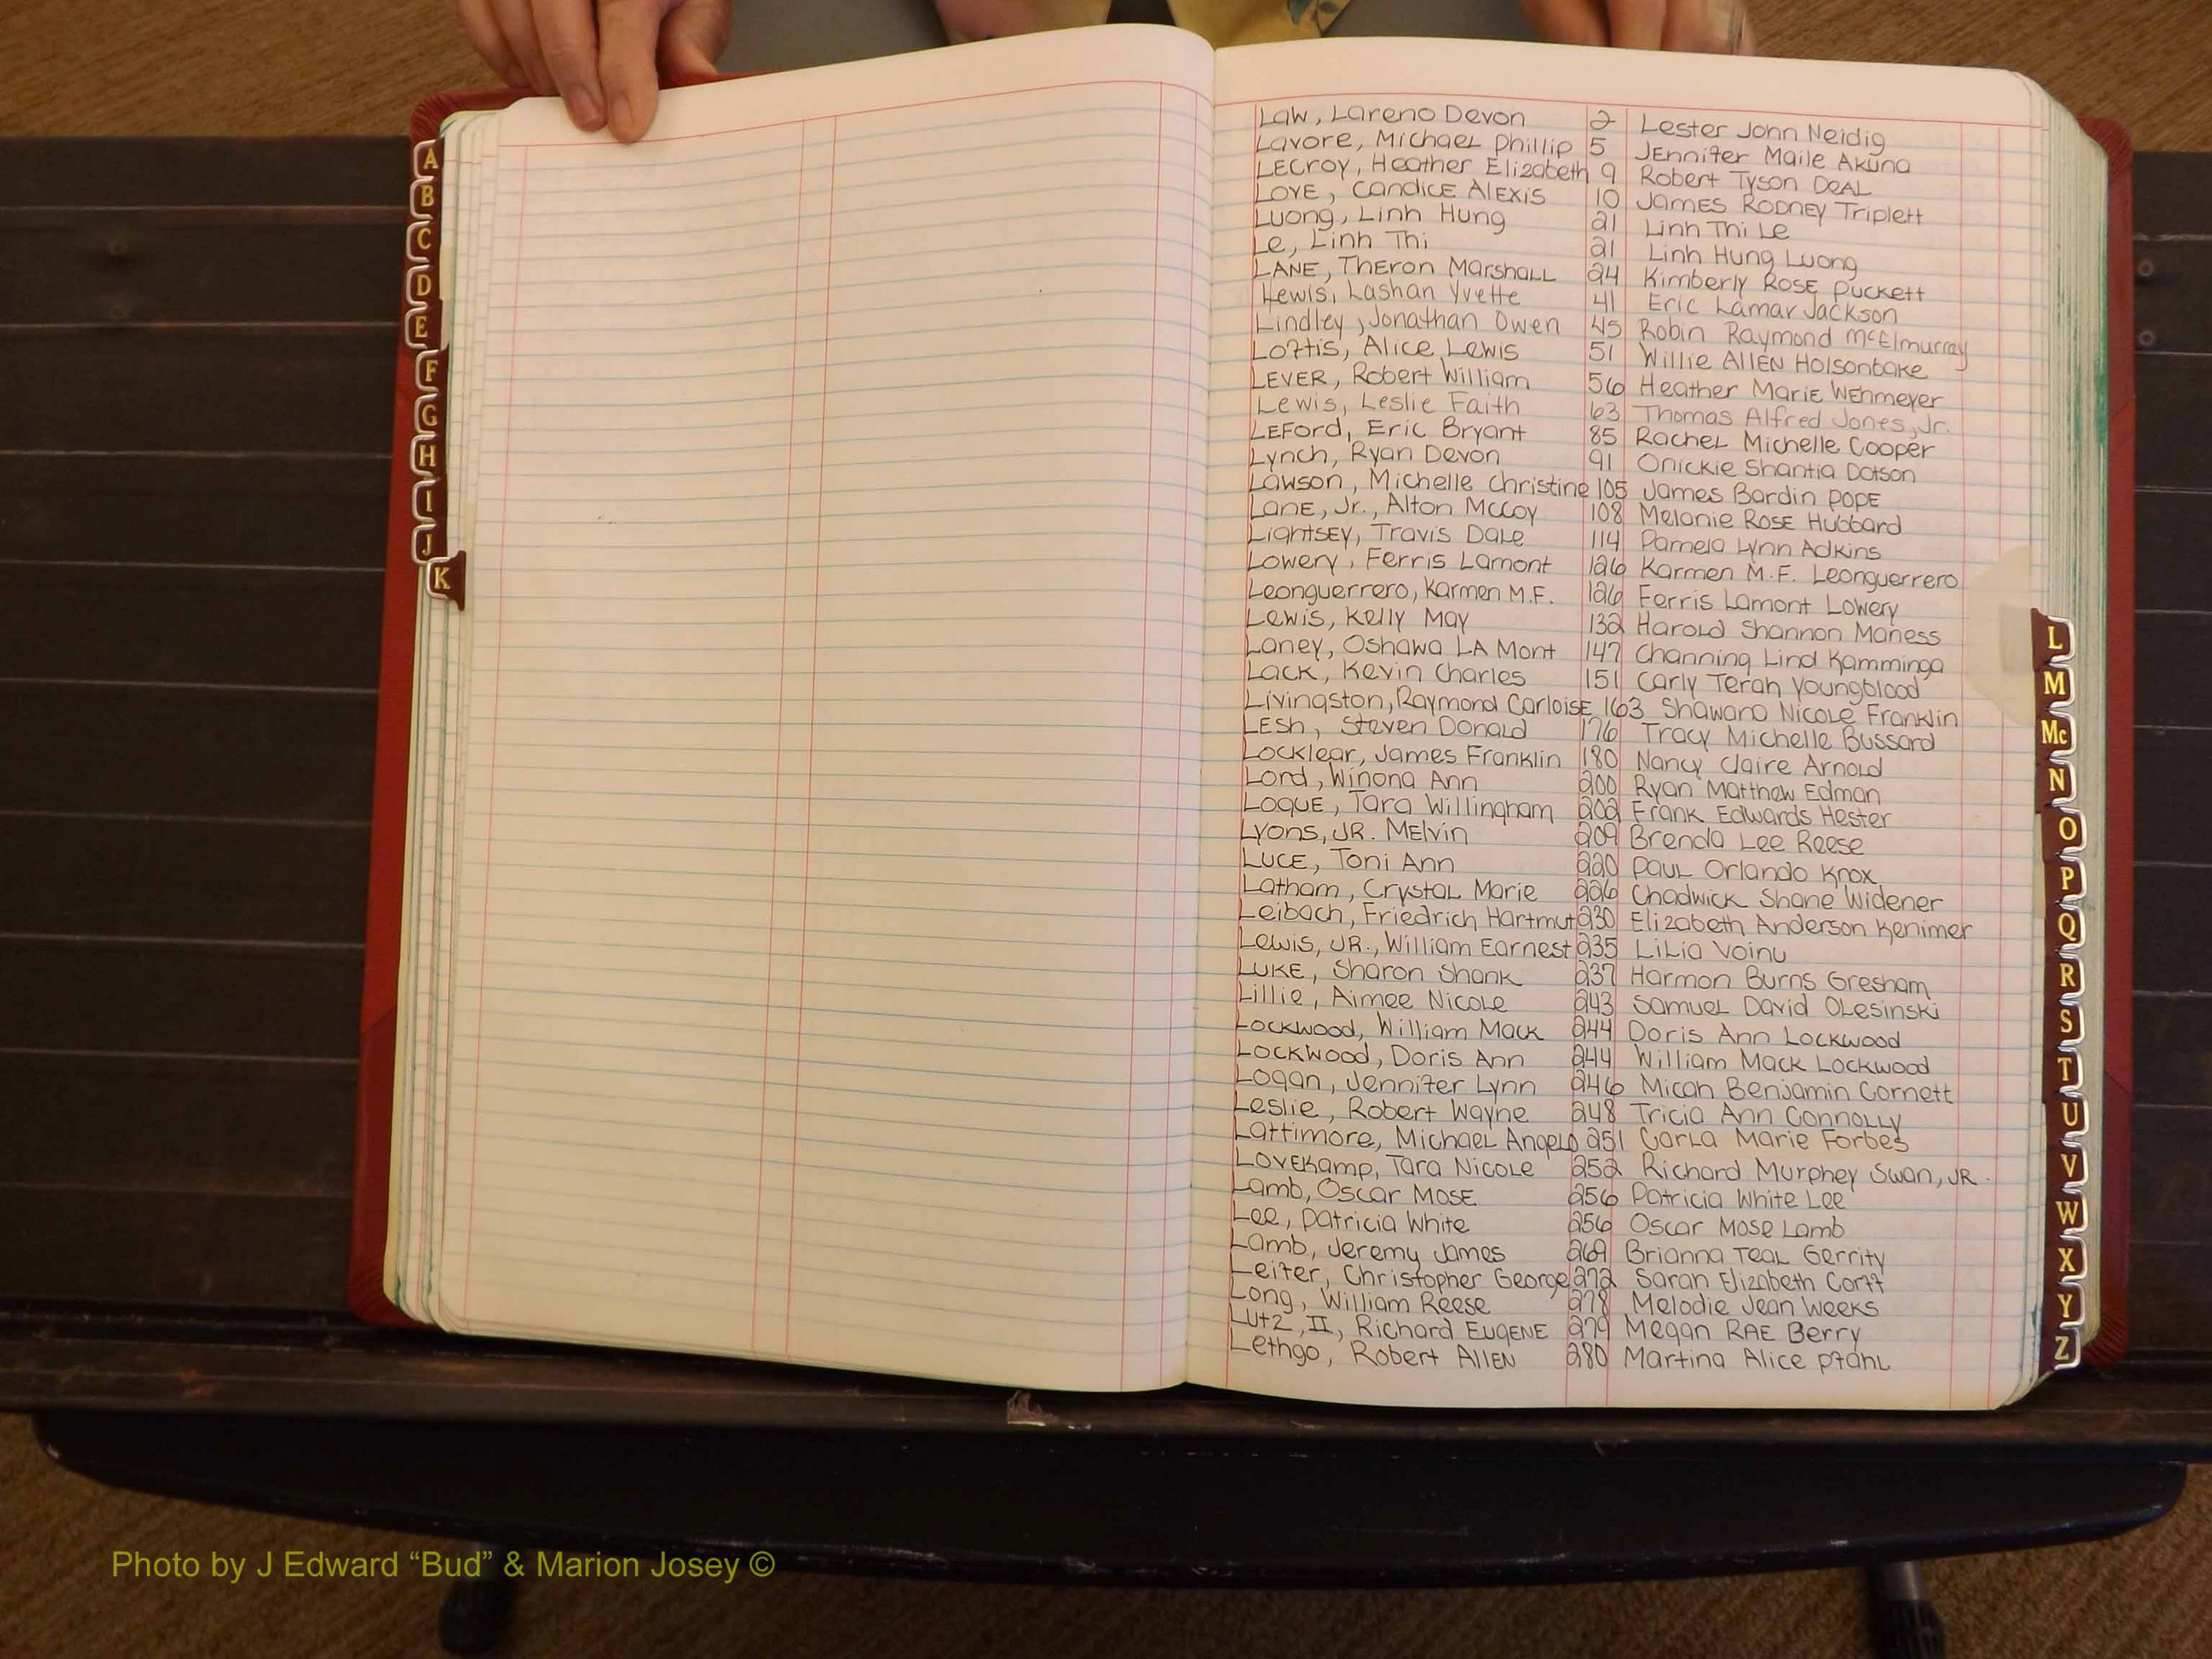 A
B
C
D
E
F
G
H
I
J
K
Law, Lareno Devon 2 Lester John Neidig
Lavore, Michael Phillip 5 Jennifer Maile Akuna
LECroy, Heather Elizabeth 9 Robert Tyson DEAL
LOVE, Candice Alexis 10 James Rodney Triplett
Luong, Linh Hung 21 Linh Thi Le
Le, Linh Thi 21 Linh Hung Luong
LANE, Theron Marshall 24 Kimberly Rose Puckett
Lewis, Lashan Yvette 41 Eric Lamar Jackson
Lindley, Jonathan Owen 45 Robin Raymond McElmurray
Loftis, Alice Lewis 51 Willie Allen Holsonbake
LEVER, Robert William 56 Heather Marie Wehmeyer
Lewis, Leslie Faith 63 Thomas Alfred Jones, Jr.
LEFord, Eric Bryant 85 Rachel Michelle Cooper
Lynch, Ryan Devon 91 Onickie Shantia Dotson
Lawson, Michelle Christine 105 James Bardin Pope
Lane, Jr., Alton McCoy 108 Melanie Rose Hubbard
Lightsey, Travis Dale 114 Pamela Lynn Adkins
Lowery, Ferris Lamont 126 Karmen M.F. Leonguerrero
Leonguerrero, Karmen M.F. 126 Ferris Lamont Lowery
Lewis, Kelly May 132 Harold Shannon Maness
Laney, Oshawa LA Mont 147 Channing Lind Kamminga
Lack, Kevin Charles 151 Carly Terah Youngblood
Livingston, Raymond Carloise 163 Shaward Nicole Franklin
Lesh, Steven Donald 176 Tracy Michelle Bussard
Locklear, James Franklin 180 Nancy Claire Arnold
Lord, Winona Ann 200 Ryan Matthew Edman
Logue, Tara Willingham 202 Frank Edwards Hester
Lyons, JR. Melvin 209 Brenda Lee Reese
Luce, Toni Ann 220 Paul Orlando Knox
Latham, Crystal Marie 226 Chadwick Shane Widener
Leibach, Friedrich Hartmut 230 Elizabeth Anderson Kenimer
Lewis, JR., William Earnest 235 Lilia Voinu
Luke, Sharon Shank 237 Harmon Burns Gresham
Lillie, Aimee Nicole 243 Samuel David Olesinski
Lockwood, William Mack 244 Doris Ann Lockwood
Lockwood, Doris Ann 244 William Mack Lockwood
Logan, Jennifer Lynn 246 Micah Benjamin Cornett
Leslie, Robert Wayne 248 Tricia Ann Connolly
Lattimore, Michael Angelo 251 Carla Marie Forbes
Lovekamp, Tara Nicole 252 Richard Murphey Swan, JR.
Lamb, Oscar Mose 256 Patricia White Lee
Lee, Patricia White 256 Oscar Mose Lamb
Lamb, Jeremy James 269 Brianna Teal Gerrity
Leifer, Christopher George 272 Sarah Elizabeth Corff
Long, William Reese 278 Melodie Jean Weeks
Lutz, II, Richard Eugene 279 Megan RAE Berry
Lethgo, Robert Allen 280 Martina Alice Pfahl
L
M
Mc
N
O
P
Q
R
S
T
U
V
W
X
Y
Z
Photo by J Edward “Bud” & Marion Josey ©